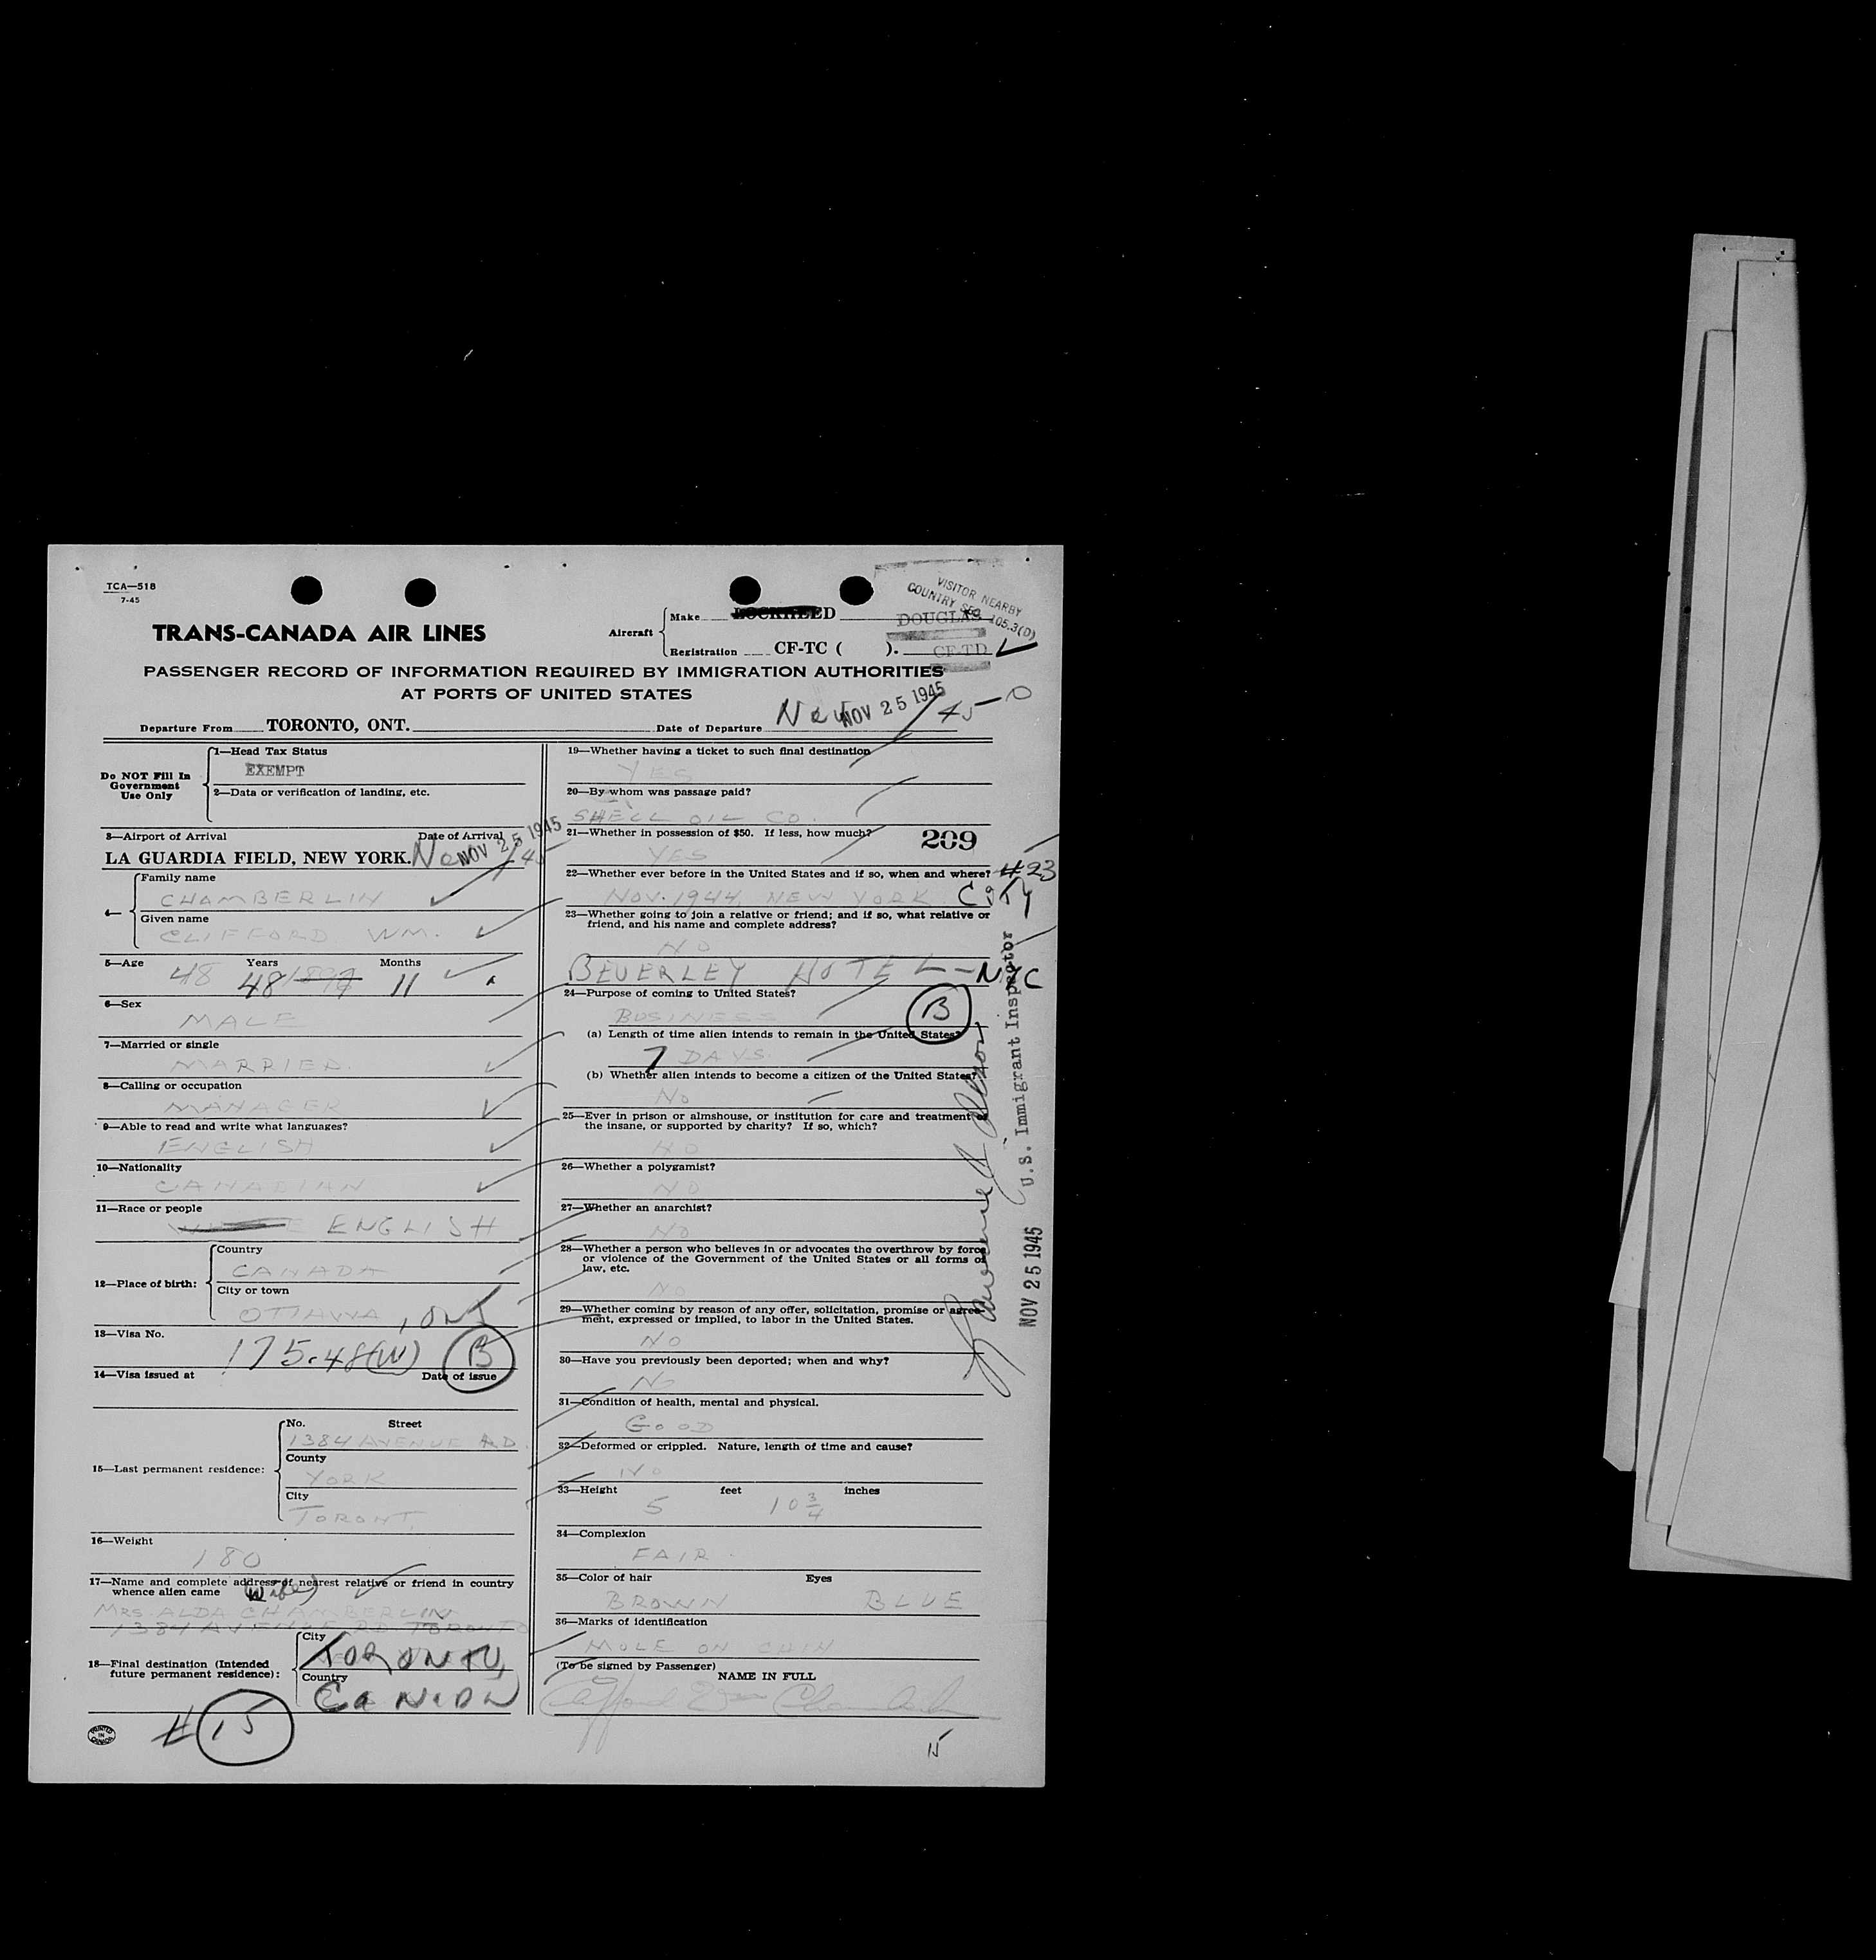 TCA—518
7-45
VISITOR NEARBY
COUNTRY SEC. 105.3(D)
TRANS-CANADA AIR LINES
Aircraft
Make LOCKHEED DOUGLAS
Registration CF-TC ( ). CF-TD
PASSENGER RECORD OF INFORMATION REQUIRED BY IMMIGRATION AUTHORITIES
AT PORTS OF UNITED STATES
Departure From TORONTO, ONT. Date of Departure Nov NOV 25 1945 45
Do NOT Fill In
Government
Use Only
1—Head Tax Status
EXEMPT
2—Data or verification of landing, etc.
3—Airport of Arrival Date of Arrival
LA GUARDIA FIELD, NEW YORK. Nov NOV 25 1945 45
4—
Family name
CHAMBERLIN
Given name
CLIFFORD WM.
5—Age Years Months
48 48 11
6—Sex
MALE
7—Married or single
MARRIED.
8—Calling or occupation
MANAGER
9—Able to read and write what languages?
ENGLISH
10—Nationality
CANADIAN
11—Race or people
WHITE ENGLISH
12—Place of birth:
Country
CANADA
City or town
OTTAWA, ONT
13—Visa No.
175.48(W) B
14—Visa issued at Date of issue
15—Last permanent residence:
No. Street
1384 AVENUE RD.
County
YORK
City
TORONT
16—Weight
180
17—Name and complete address of nearest relative or friend in country
whence alien came (Wife)
MRS. ALDA CHAMBERLIN
1384 AVENUE RD TORONTO
18—Final destination (Intended
future permanent residence):
City
TORONTO,
Country
CANADA
#15
PRINTED IN CANADA
19—Whether having a ticket to such final destination
YES
20—By whom was passage paid?
SHELL OIL CO.
21—Whether in possession of $50. If less, how much?
YES
209
22—Whether ever before in the United States and if so, when and where? #23
NOV. 1944, NEW YORK CITY
23—Whether going to join a relative or friend; and if so, what relative or
friend, and his name and complete address?
NO
BEVERLEY HOTEL—NYC
24—Purpose of coming to United States?
BUSINESS B
(a) Length of time alien intends to remain in the United States?
7 DAYS.
(b) Whether alien intends to become a citizen of the United States?
NO
25—Ever in prison or almshouse, or institution for care and treatment of
the insane, or supported by charity? If so, which?
NO
26—Whether a polygamist?
NO
27—Whether an anarchist?
NO
28—Whether a person who believes in or advocates the overthrow by force
or violence of the Government of the United States or all forms of
law, etc.
NO
29—Whether coming by reason of any offer, solicitation, promise or agree-
ment, expressed or implied, to labor in the United States.
NO
30—Have you previously been deported; when and why?
NO
31—Condition of health, mental and physical.
GOOD
32—Deformed or crippled. Nature, length of time and cause?
NO
33—Height feet inches
5 10 3/4
34—Complexion
FAIR.
35—Color of hair Eyes
BROWN BLUE
36—Marks of identification
MOLE ON CHIN
(To be signed by Passenger)
NAME IN FULL
Clifford Wm Chamberlin
15
U.S. Immigrant Inspector
NOV 25 1945